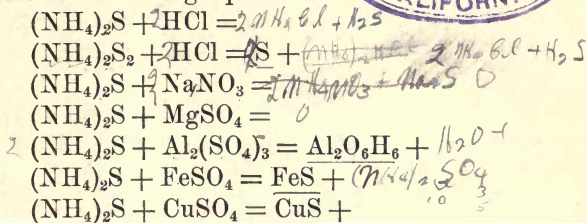 CALIFORNIA
(NH₄)₂S + 2HCl = 2NH₄Cl + H₂S
(NH₄)₂S₂ + 2HCl = S + 2NH₄Cl + H₂S
(NH₄)₂S + NaNO₃ = 0
(NH₄)₂S + MgSO₄ = 0
2 (NH₄)₂S + Al₂(SO₄)₃ = Al₂O₆H₆ + H₂O
(NH₄)₂S + FeSO₄ = FeS + (NH₄)₂SO₄
(NH₄)₂S + CuSO₄ = CuS +